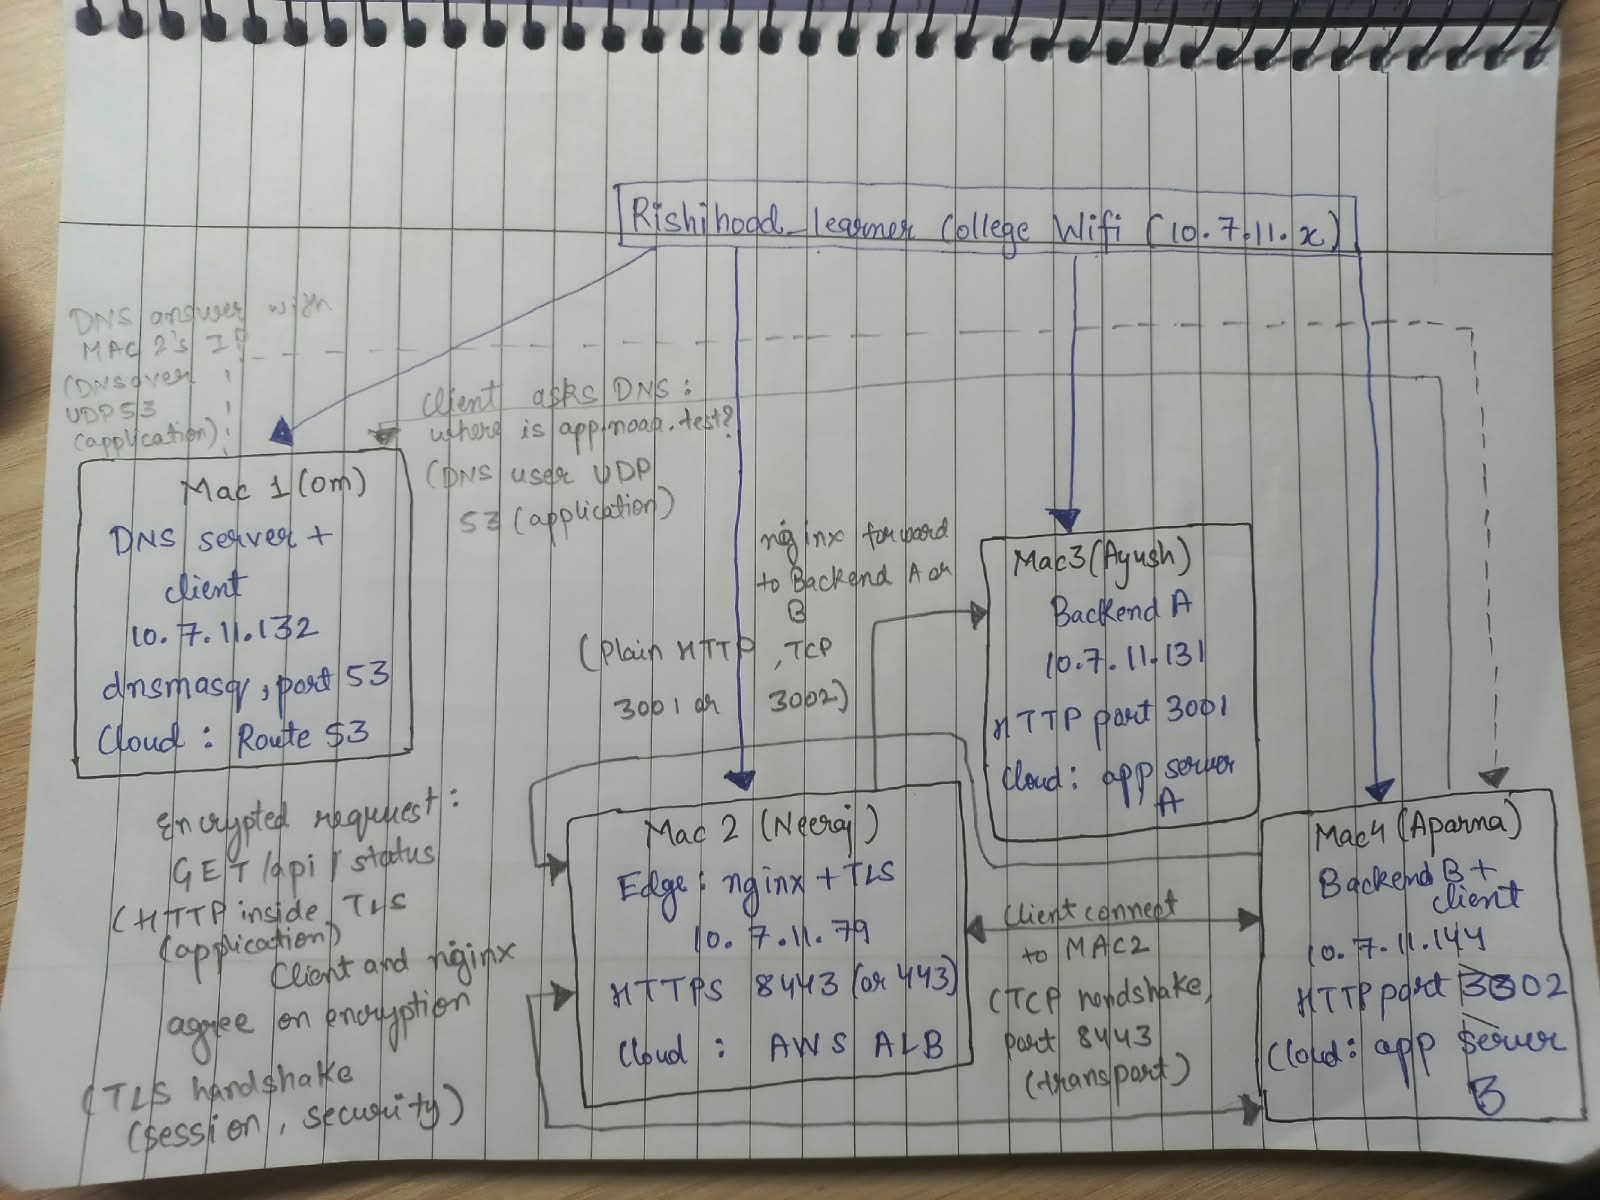 Rishihood_learner College Wifi (10.7.11.x)
DNS answer with
MAC 2's IP
(DNS over
UDP 53
(application)
Client asks DNS:
where is app.noaa.test?
(DNS user UDP
53 (application)
Mac 1 (Om)
DNS server +
client
10.7.11.132
dnsmasq, port 53
Cloud: Route 53
nginx forward
to Backend A or
B
(Plain HTTP, TCP
3001 or 3002)
Mac3 (Ayush)
Backend A
10.7.11.131
HTTP port 3001
Cloud: app server
A
Encrypted request:
GET /api/status
(HTTP inside TLS
(application)
Client and nginx
agree on encryption
(TLS handshake
(session, security)
Mac 2 (Neeraj)
Edge: nginx + TLS
10.7.11.79
HTTPS 8443 (or 443)
Cloud: AWS ALB
Client connect
to MAC2
(TCP handshake,
port 8443
(transport)
Mac4 (Aparna)
Backend B +
client
10.7.11.144
HTTP port 3002
Cloud: app server
B